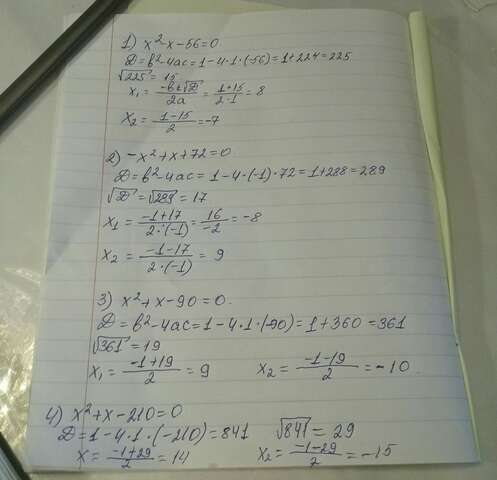 1) x²-x-56=0
D=b²-4ac=1-4·1·(-56)=1+224=225
√225=15
x₁=(-b+√D)/2a=(1+15)/(2·1)=8
x₂=(1-15)/2=-7
2) -x²+x+72=0
D=b²-4ac=1-4·(-1)·72=1+288=289
√D=√289=17
x₁=(-1+17)/(2·(-1))=16/-2=-8
x₂=(-1-17)/(2·(-1))=9
3) x²+x-90=0.
D=b²-4ac=1-4·1·(-90)=1+360=361
√361=19
x₁=(-1+19)/2=9 x₂=(-1-19)/2=-10
4) x²+x-210=0
D=1-4·1·(-210)=841 √841=29
x=(-1+29)/2=14 x₂=(-1-29)/2=-15